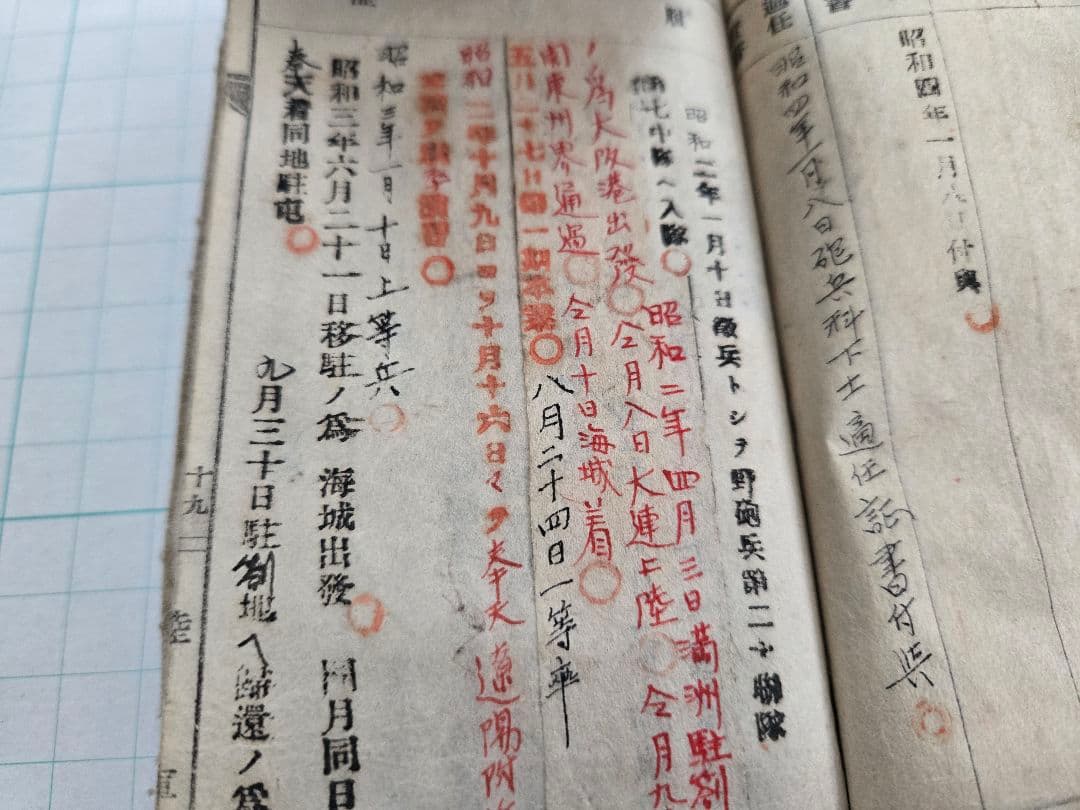 昭和四年一月八日付與
昭和四年一月八日砲兵科下士適任証書付與
昭和二年一月十日徴兵トシテ野砲兵第二十聯隊
第七中隊ヘ入隊
昭和二年四月三日満洲駐剳
ノ為大阪港出發
仝月八日大連上陸
仝月九
関東州界通過
仝月十日海城着
五月二十七日第一期卒業
八月二十四日一等卒
昭和二年十月九日ヨリ十月十六日マテ奉天遼陽附
季演習
昭和三年一月十日上等兵
昭和三年六月二十一日移駐ノ為海城出發
同月同日
奉天着同地駐屯
九月三十日駐剳地ヘ歸還ノ為
十九
陸
軍